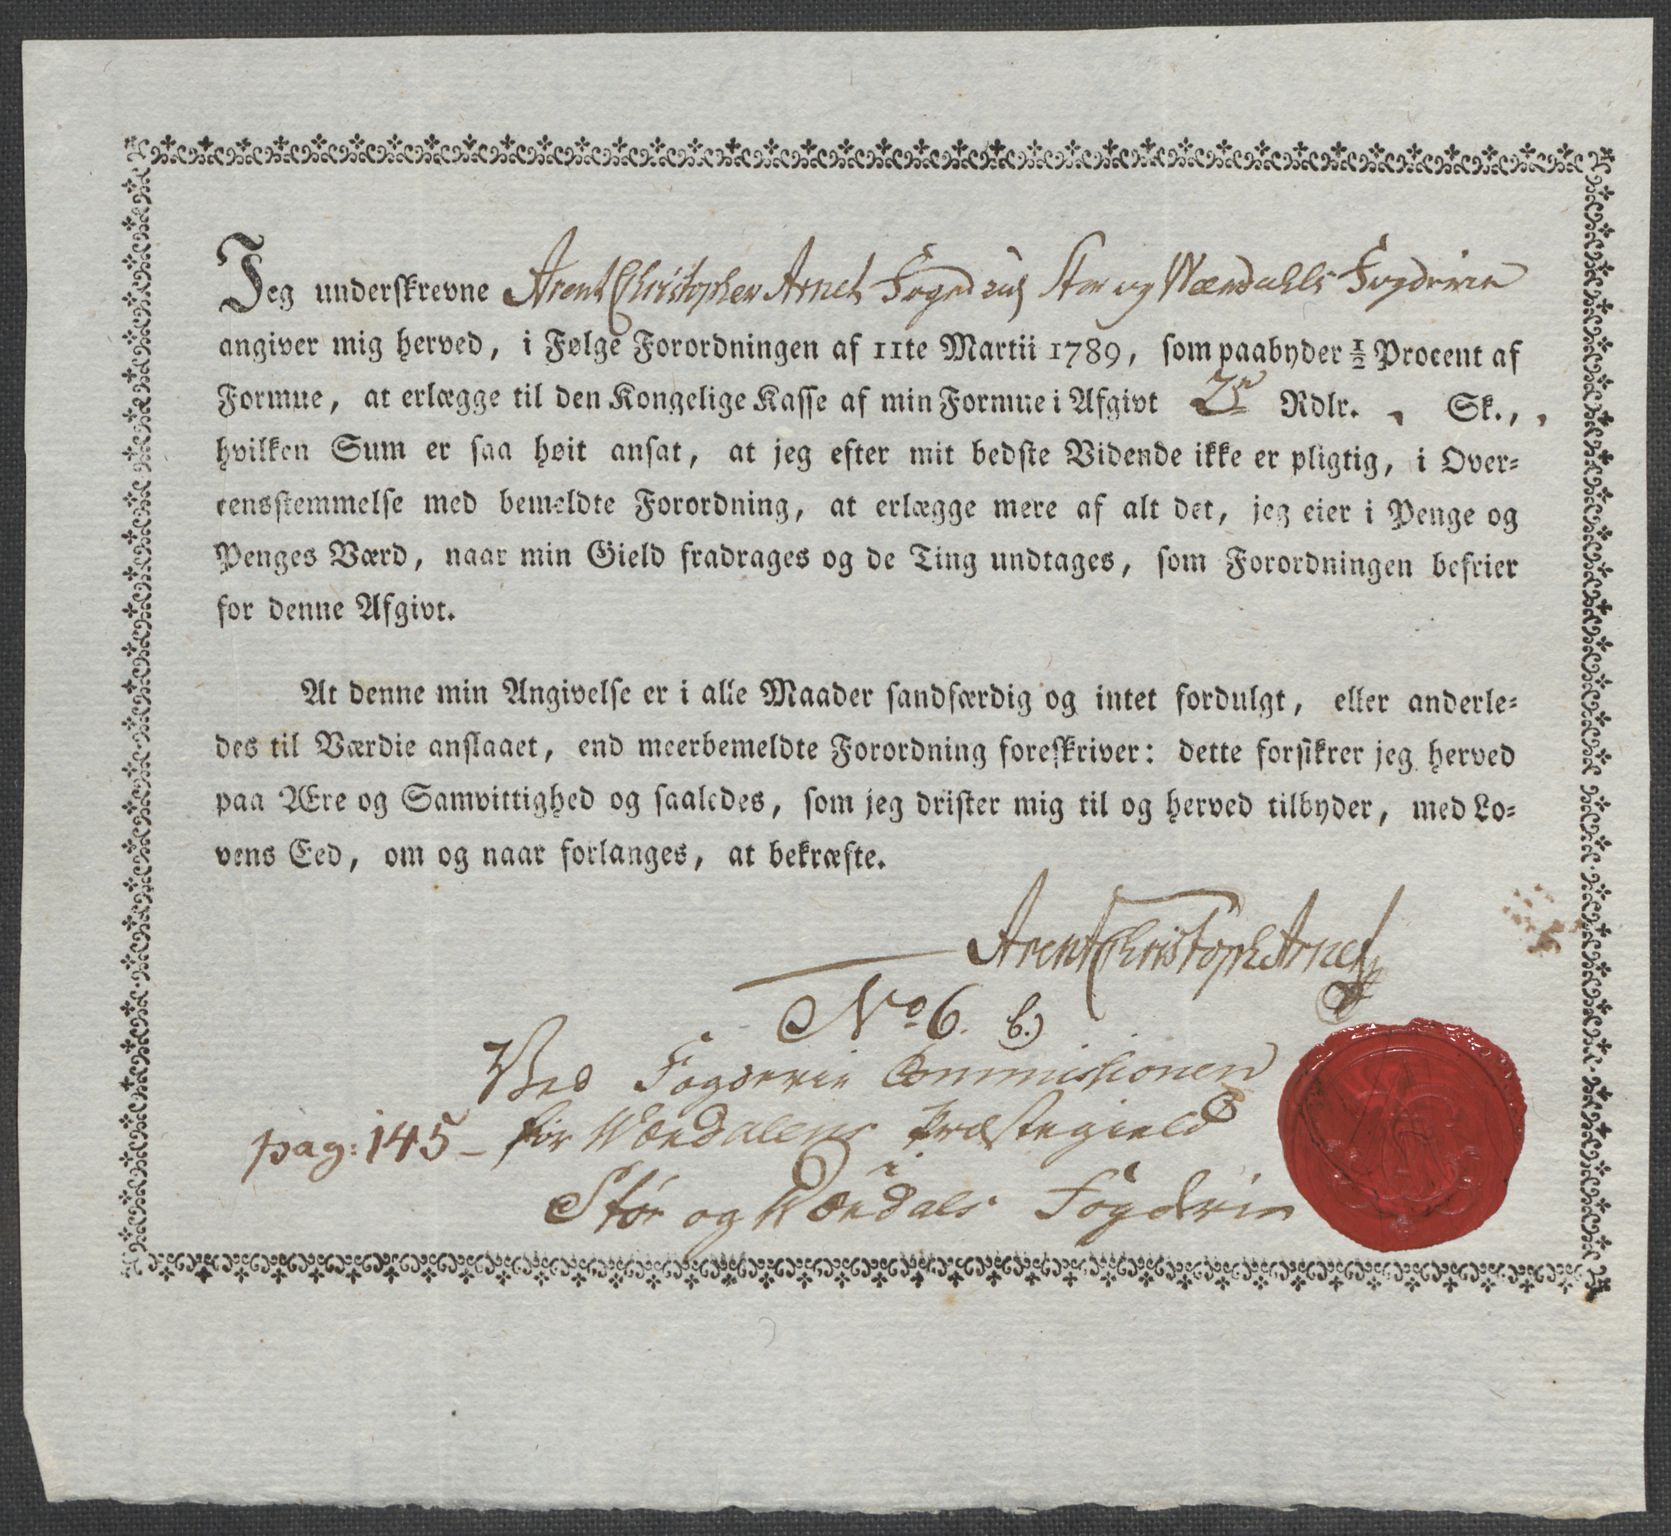 Jeg underskrevne Arent Christopher Arnet Foged udj Stør og Wærdahls Fogderie
angiver mig herved, i Følge Forordningen af 11te Martii 1789, som paabyder ½ Procent af
Formue, at erlægge til den Kongelige Kasse af min Formue i Afgivt Rdlr. , Sk., ,
hvilken Sum er saa høit ansat, at jeg efter mit bedste Vidende ikke er pligtig, i Over-
eensstemmelse med bemeldte Forordning, at erlægge mere af alt det, jeg eier i Penge og
Penges Værd, naar min Gield fradrages og de Ting undtages, som Forordningen befrier
for denne Afgivt.
At denne min Angivelse er i alle Maader sandfærdig og intet fordulgt, eller anderle-
des til Værdie anslaaet, end meerbemeldte Forordning foreskriver: dette forsikrer jeg herved
paa Ære og Samvittighed og saaledes, som jeg drister mig til og herved tilbyder, med Lo-
vens Eed, om og naar forlanges, at bekræfte.
Arent Christoph Arnet
No 6. b.)
Ved Fogderie Commissionen
pag: 145 - for Wærdalens Præstegield
i
Stør og Wærdals Fogderie